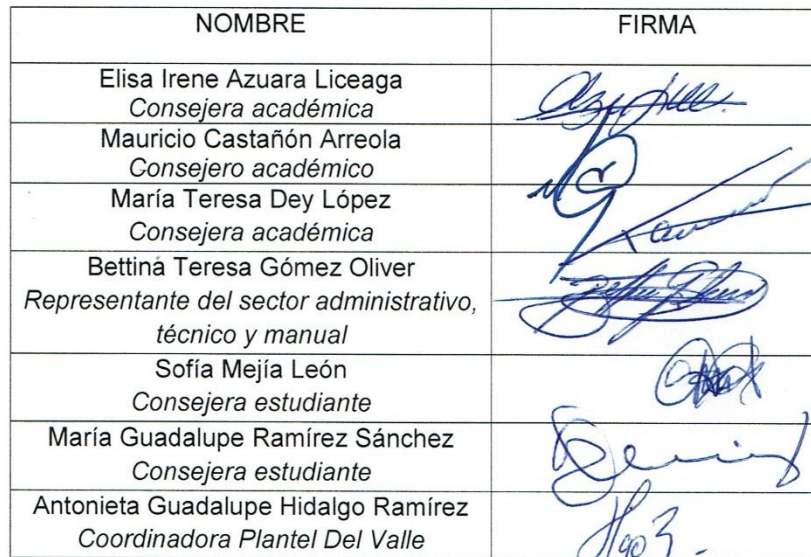 NOMBRE FIRMA
Elisa Irene Azuara Liceaga
Consejera académica
Mauricio Castañón Arreola
Consejero académico
María Teresa Dey López
Consejera académica
Bettina Teresa Gómez Oliver
Representante del sector administrativo,
técnico y manual
Sofía Mejía León
Consejera estudiante
María Guadalupe Ramírez Sánchez
Consejera estudiante
Antonieta Guadalupe Hidalgo Ramírez
Coordinadora Plantel Del Valle